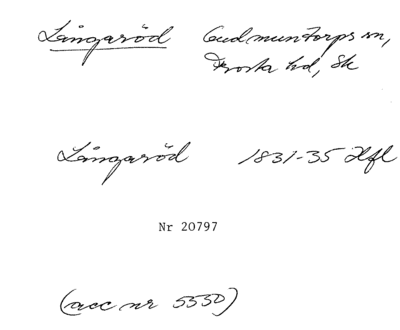 Långaröd Gudmuntorps sn,
Frosta hd, Sk
Långaröd 1831-35 Hfl
Nr 20797
(acc nr 5550)